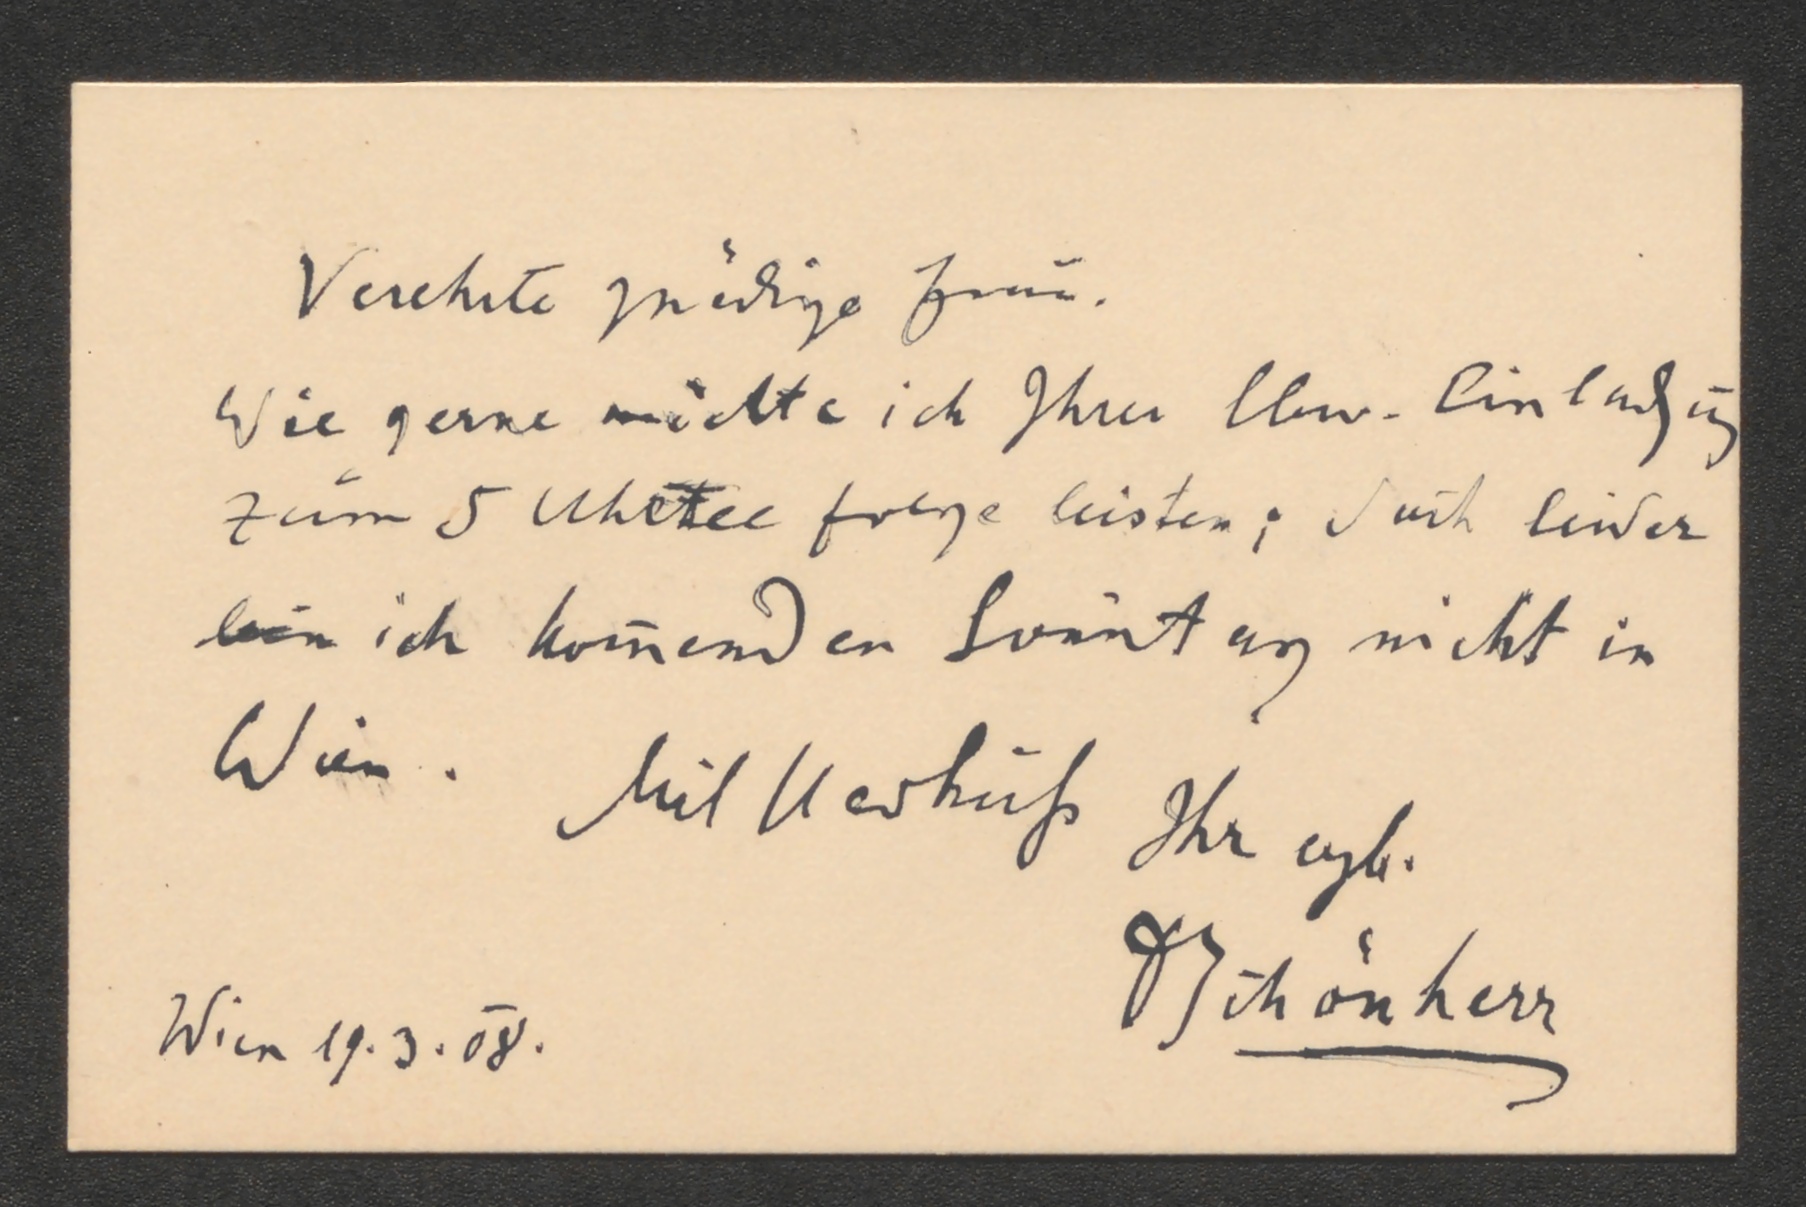 Verehrte gnädige Frau.
Wie gerne möchte ich Ihrer lbw. Einladung
zum 5 Uhrtee folge leisten; doch leider
bin ich kom̅enden Sonntag nicht in
Wien. Mit Handkuß Ihr ergb.
Schönherr
Wien 19.3.08.